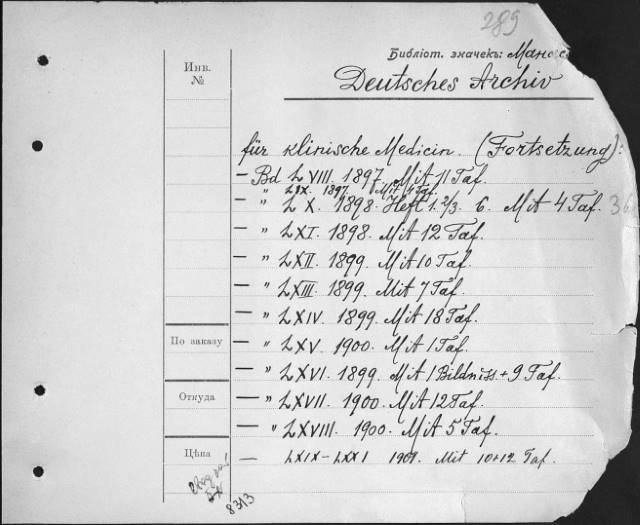 289
Библіот. значекъ:
Инв.
№
Deutsches Archiv
für klinische Medicin. (Fortsetzung):
— Bd LVIII. 1897. Mit 11 Taf.
" LIX. 1897. Mit 4 Taf.
— " LX. 1898. Heft 1. 2/3. 6. Mit 4 Taf. 3
— " LXI. 1898. Mit 12 Taf.
— " LXII. 1899. Mit 10 Taf.
— " LXIII. 1899. Mit 7 Taf.
— " LXIV. 1899. Mit 18 Taf.
По заказу
— " LXV. 1900. Mit 1 Taf.
— " LXVI. 1899. Mit 1 Bildniss + 9 Taf.
Откуда
— " LXVII. 1900. Mit 12 Taf.
— " LXVIII. 1900. Mit 5 Taf.
Цѣна
— LXIX–LXXI 1901. Mit 10+12 Taf.
8313